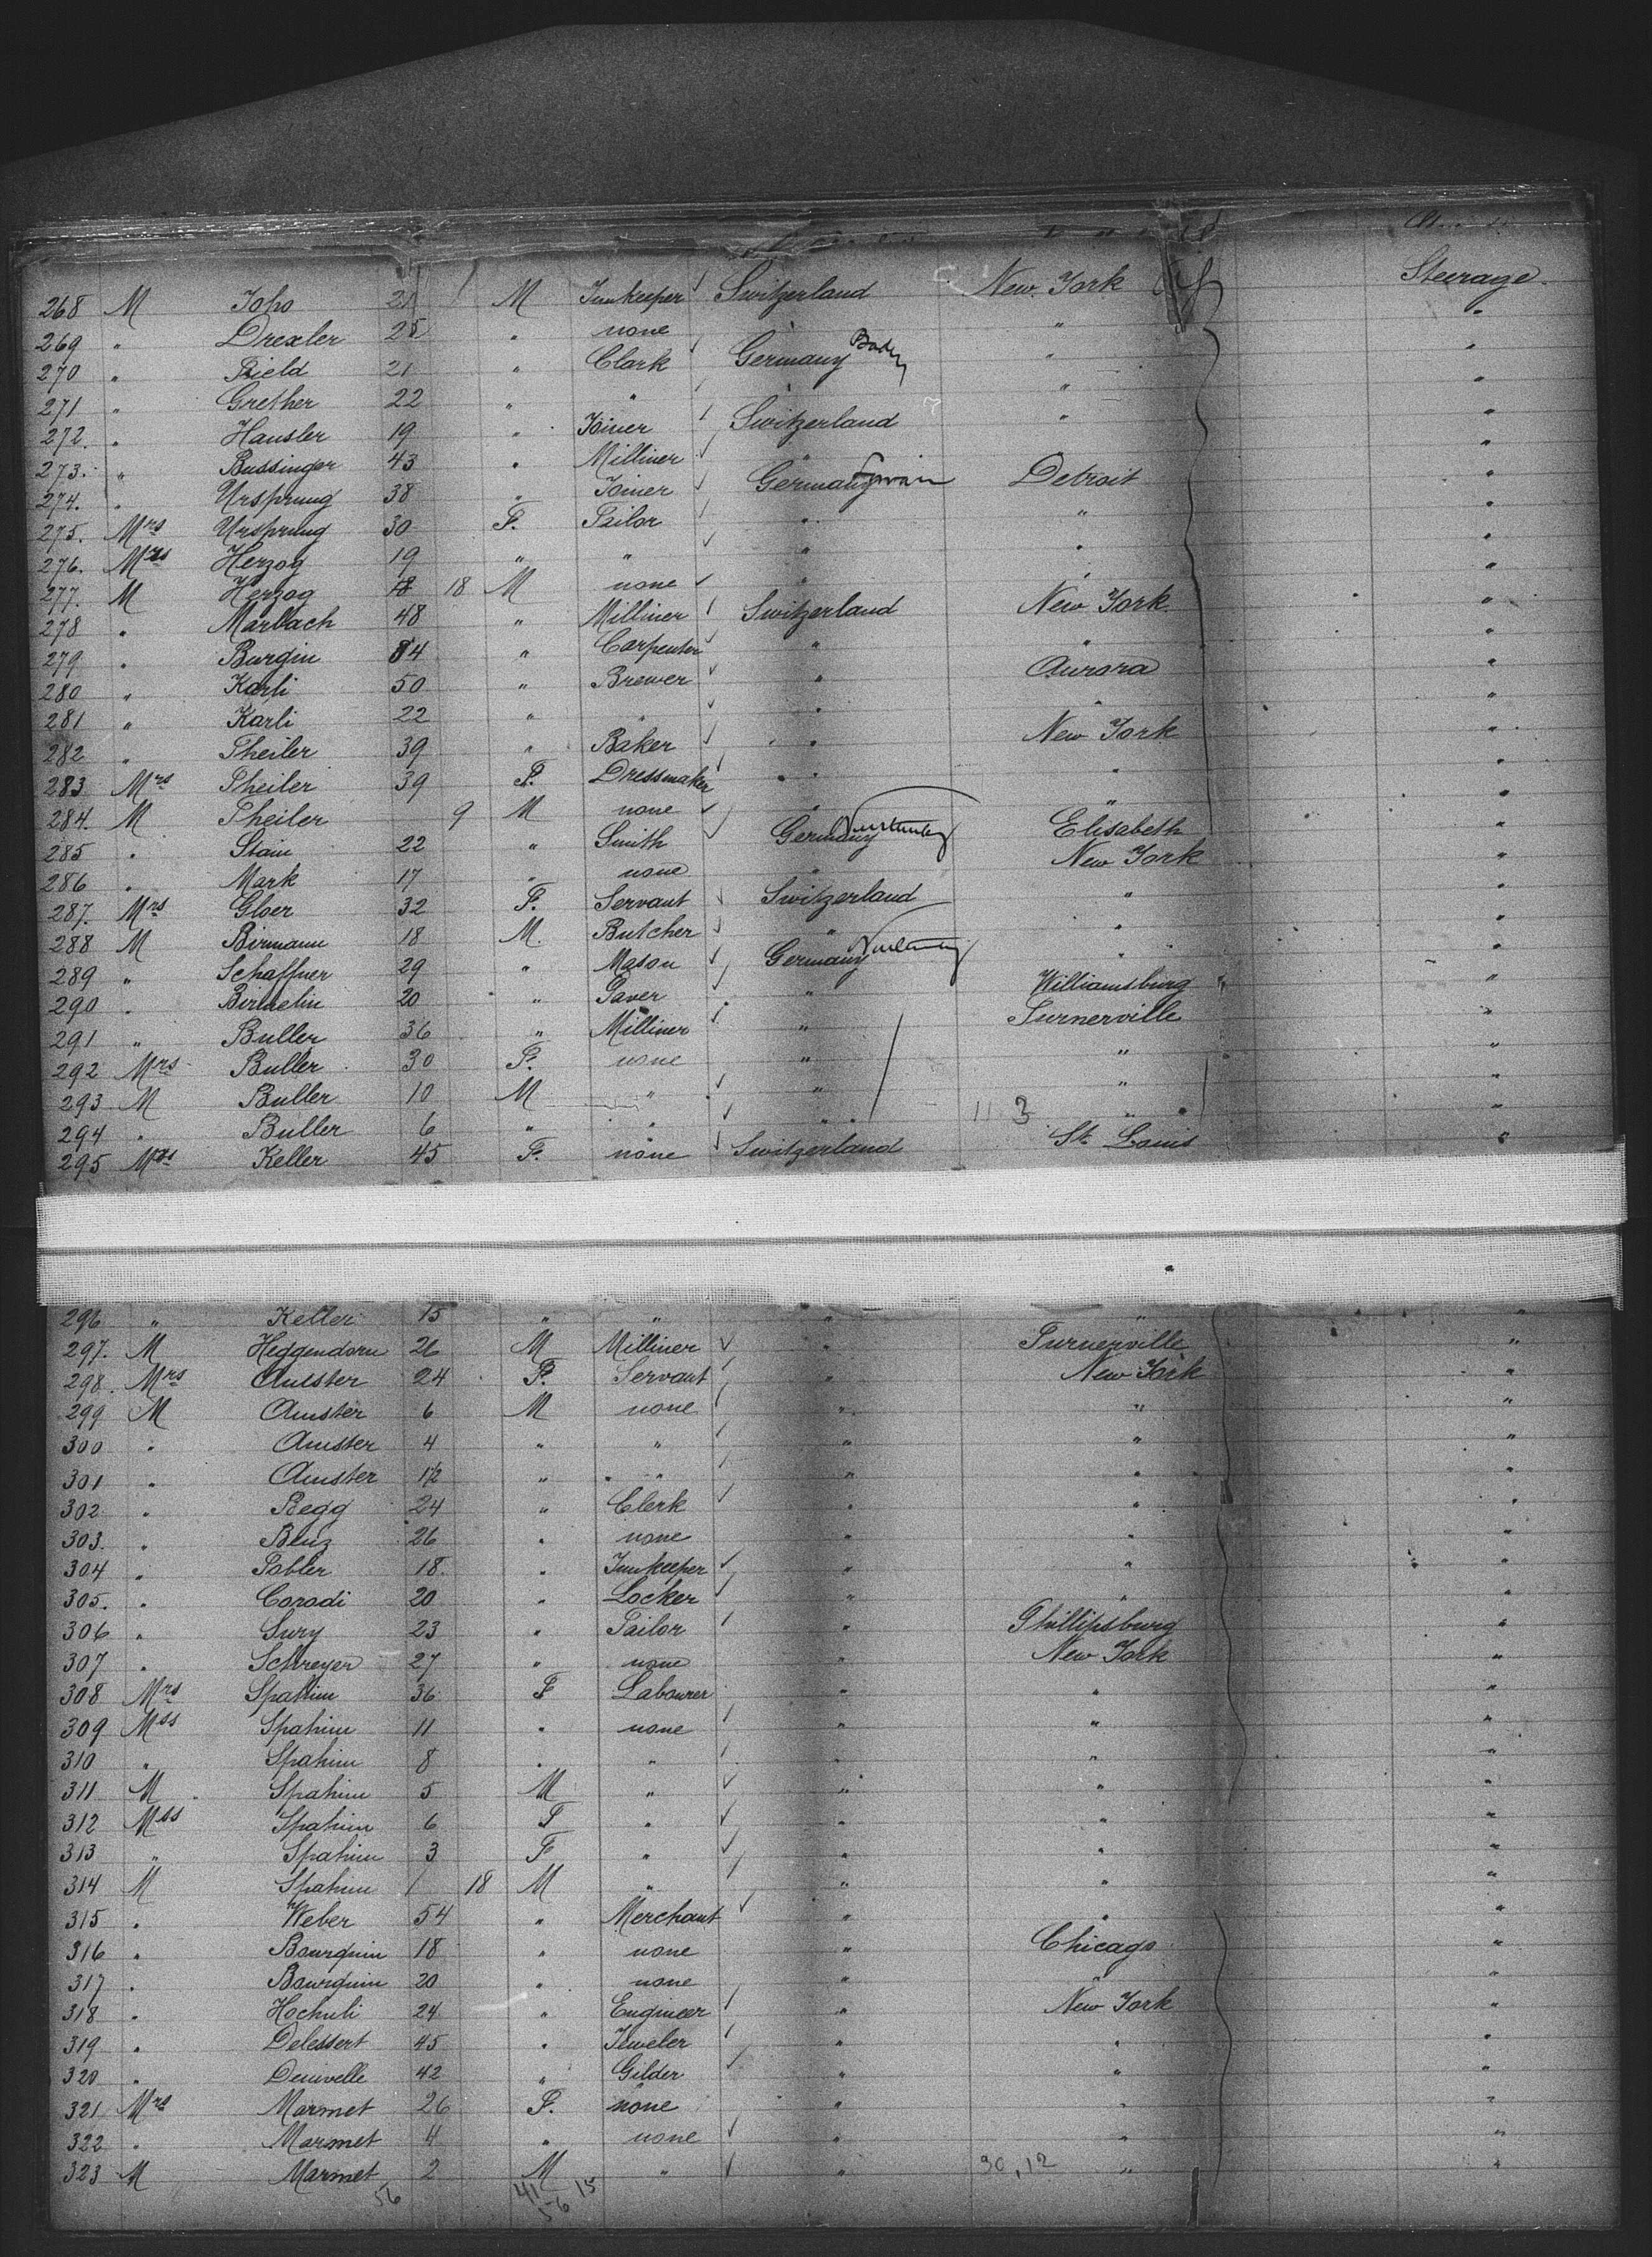 268 M Joho 21 M Innkeeper ✓ Switzerland New York Steerage.
269 " Drexler 25 " none " " "
270 " Rield 21 " Clark Germany Baden " "
271 " Grether 22 " " " " "
272. " Hausler 19 " Joiner ✓ Switzerland " "
273. " Bussinger 43 " Milliner ✓ " "
274. " Ursprung 38 " Joiner ✓ Germany Detroit "
275. Mrs Ursprung 30 F. Tailor ✓ " " "
276. Mrs Herzog 19 " " ✓ " " "
277. M Herzog 18 M none ✓ " " "
278 " Marbach 48 " Milliner ✓ Switzerland New York "
279 " Burgin 34 " Carpenter ✓ " " "
280 " Karli 50 " Brewer ✓ " Aurora "
281 " Karli 22 " " ✓ " " "
282 " Theiler 39 " Baker ✓ " New York "
283 Mrs Theiler 39 F. Dressmaker ✓ " " "
284. M Theiler 9 M none ✓ " " "
285 " Stain 22 " Smith ✓ Germany Elisabeth "
286 " Mark 17 " none " New York "
287. Mrs Gloer 32 F. Servant ✓ Switzerland " "
288 M Birmann 18 M. Butcher ✓ " " "
289 " Schaffner 29 " Mason ✓ Germany " "
290 " Birmelin 20 " Paver ✓ " Williamsburg "
291 " Buller 36 " Milliner ✓ " Turnerville "
292 Mrs Buller 30 F. none " " "
293 M Buller 10 M " ✓ " " "
294 " Buller 6 " " ✓ " 11 3 " "
295 Mrs Keller 45 F. none ✓ Switzerland St. Louis "
296 " Keller 15 " " " " "
297. M Heggendorn 26 M Milliner ✓ " Turnerville "
298. Mrs Amster 24 F. Servant ✓ " New York "
299 M Amster 6 M none ✓ " " "
300 " Amster 4 " " ✓ " " "
301 " Amster 1½ " " ✓ " " "
302 " Begg 24 " Clerk ✓ " " "
303. " Benz 26 " none " " "
304 " Tobler 18. " Innkeeper ✓ " " "
305. " Coradi 20 " Locker ✓ " " "
306 " Sury 23 " Tailor ✓ " Phillipsburg "
307 " Schreyer 27 " none " New York "
308 Mrs Spahim 36 F Labourer " " "
309 Mss Spahim 11 " none ✓ " " "
310 " Spahim 8 " " ✓ " " "
311 M Spahim 5 M " ✓ " " "
312 Mss Spahim 6 F " ✓ " " "
313 " Spahim 3 F " ✓ " " "
314 M Spahim 1 18 M " ✓ " " "
315 " Weber 54 " Merchant ✓ " " "
316 " Bourquin 18 " none " Chicago "
317 " Bourquin 20 " none " " "
318 " Hochuli 24 " Engineer ✓ " New York "
319 " Delessert 45 " Jeweler ✓ " " "
320 " Denivelle 42 " Gilder ✓ " " "
321 Mrs Marmet 26 F. none " " "
322 " Marmet 4 " none ✓ " " "
323 M Marmet 2 M " ✓ " 30,12 " "
56 41 15
56